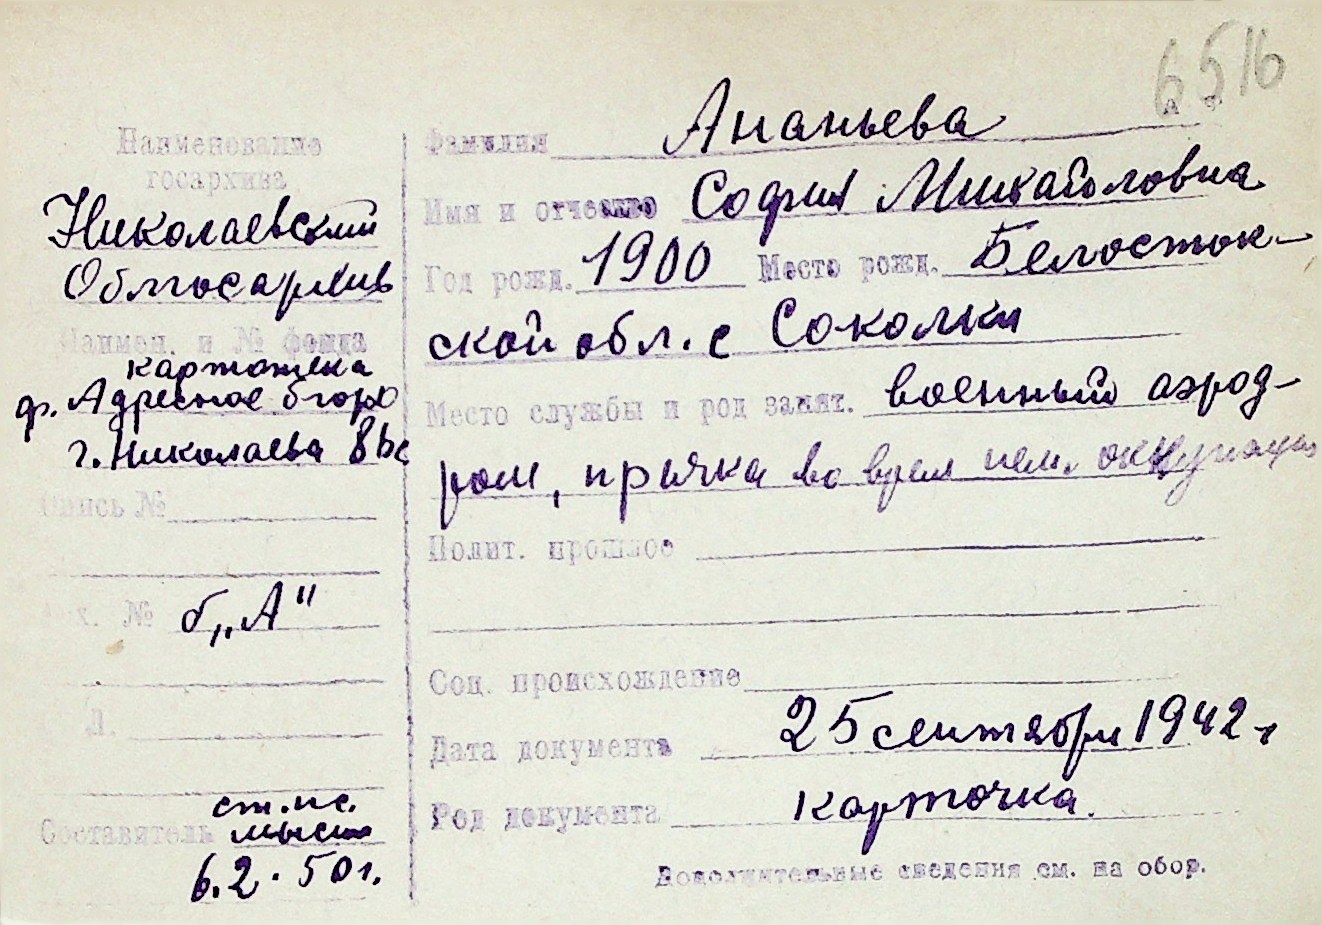 6516
Наименование
госархива
Николаевский
Облгосархив
Наимен. и № фонда
картотека
ф. Адресное бюро
г. Николаева
Опись №
Арх. № б,,А"
Л.
ст. ис.
Составитель
6.2.50 г.
Фамилия Ананьева
Имя и отчество София Михайловна
Год рожд. 1900 Место рожд. Белосток-
ской обл. с Соколки
Место службы и род занят. военный аэрод-
ром, прачка во врем нем. оккупации
Полит. прошлое
Соц. происхождение
Дата документа 25 сентября 1942 г
Род документа карточка.
Дополнительные сведения см. на обор.